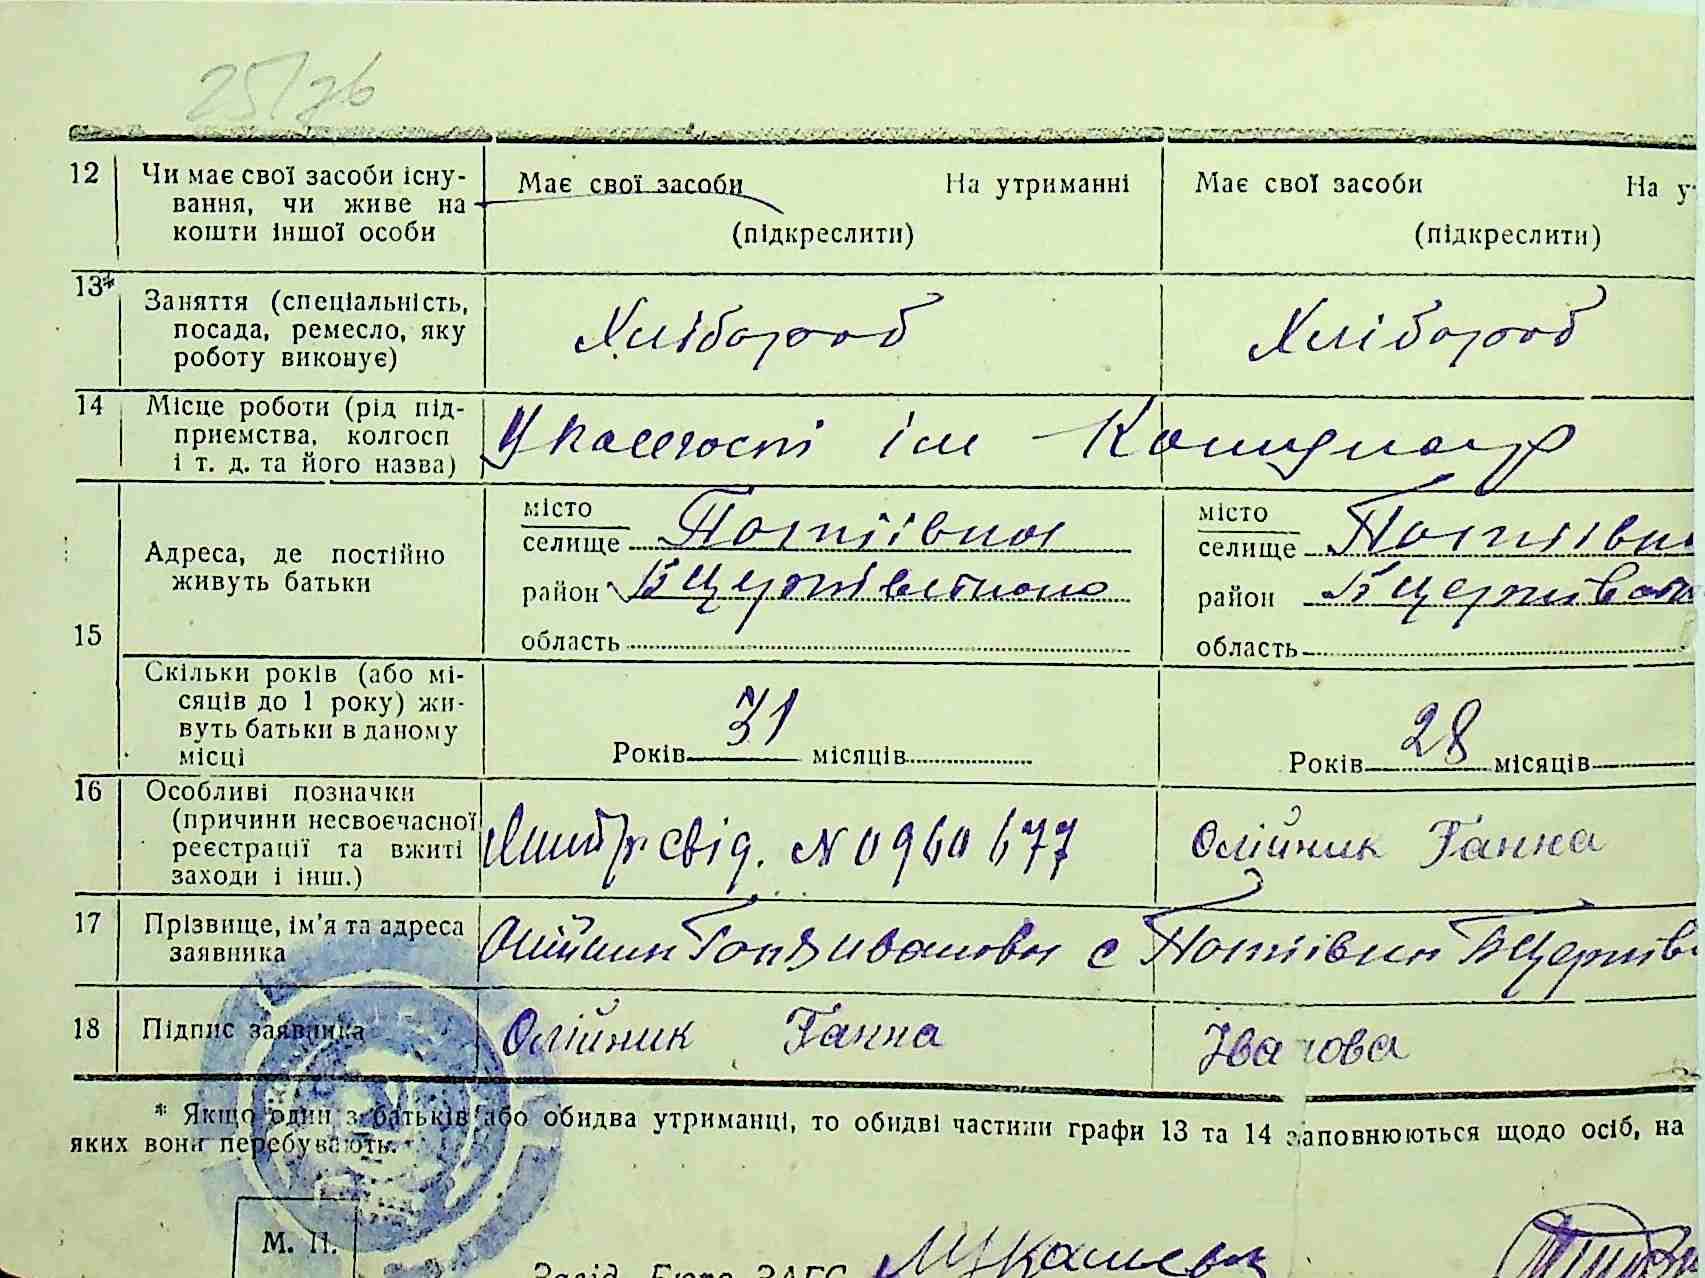 12 Чи має свої засоби існу-
вання, чи живе на
кошти іншої особи
Має свої засоби На утриманні
(підкреслити)
Має свої засоби На у
(підкреслити)
13* Заняття (спеціальність,
посада, ремесло, яку
роботу виконує)
Хлібороб
Хлібороб
14 Місце роботи (рід під-
приємства, колгосп
і т. д. та його назва)
У колгоспі ім
15
Адреса, де постійно
живуть батьки
місто
селище Потіївка
район БЦерківського
область
місто
селище Потіївка
район БЦерківсь
область
Скільки років (або мі-
сяців до 1 року) жи-
вуть батьки в даному
місці
Років 31 місяців
Років 28 місяців
16 Особливі позначки
(причини несвоєчасної
реєстрації та вжиті
заходи і інш.)
свід. № 0960677
Олійник Ганна
17 Прізвище, ім'я та адреса
заявника
Олійник Ганна Іванова с Потіївка БЦерків
18 Підпис заявника
Олійник Ганна Іванова
* Якщо один з батьків або обидва утриманці, то обидві частини графи 13 та 14 заповнюються щодо осіб, на
яких вони перебувають.
М. П.
Завід. Бюро ЗАГС